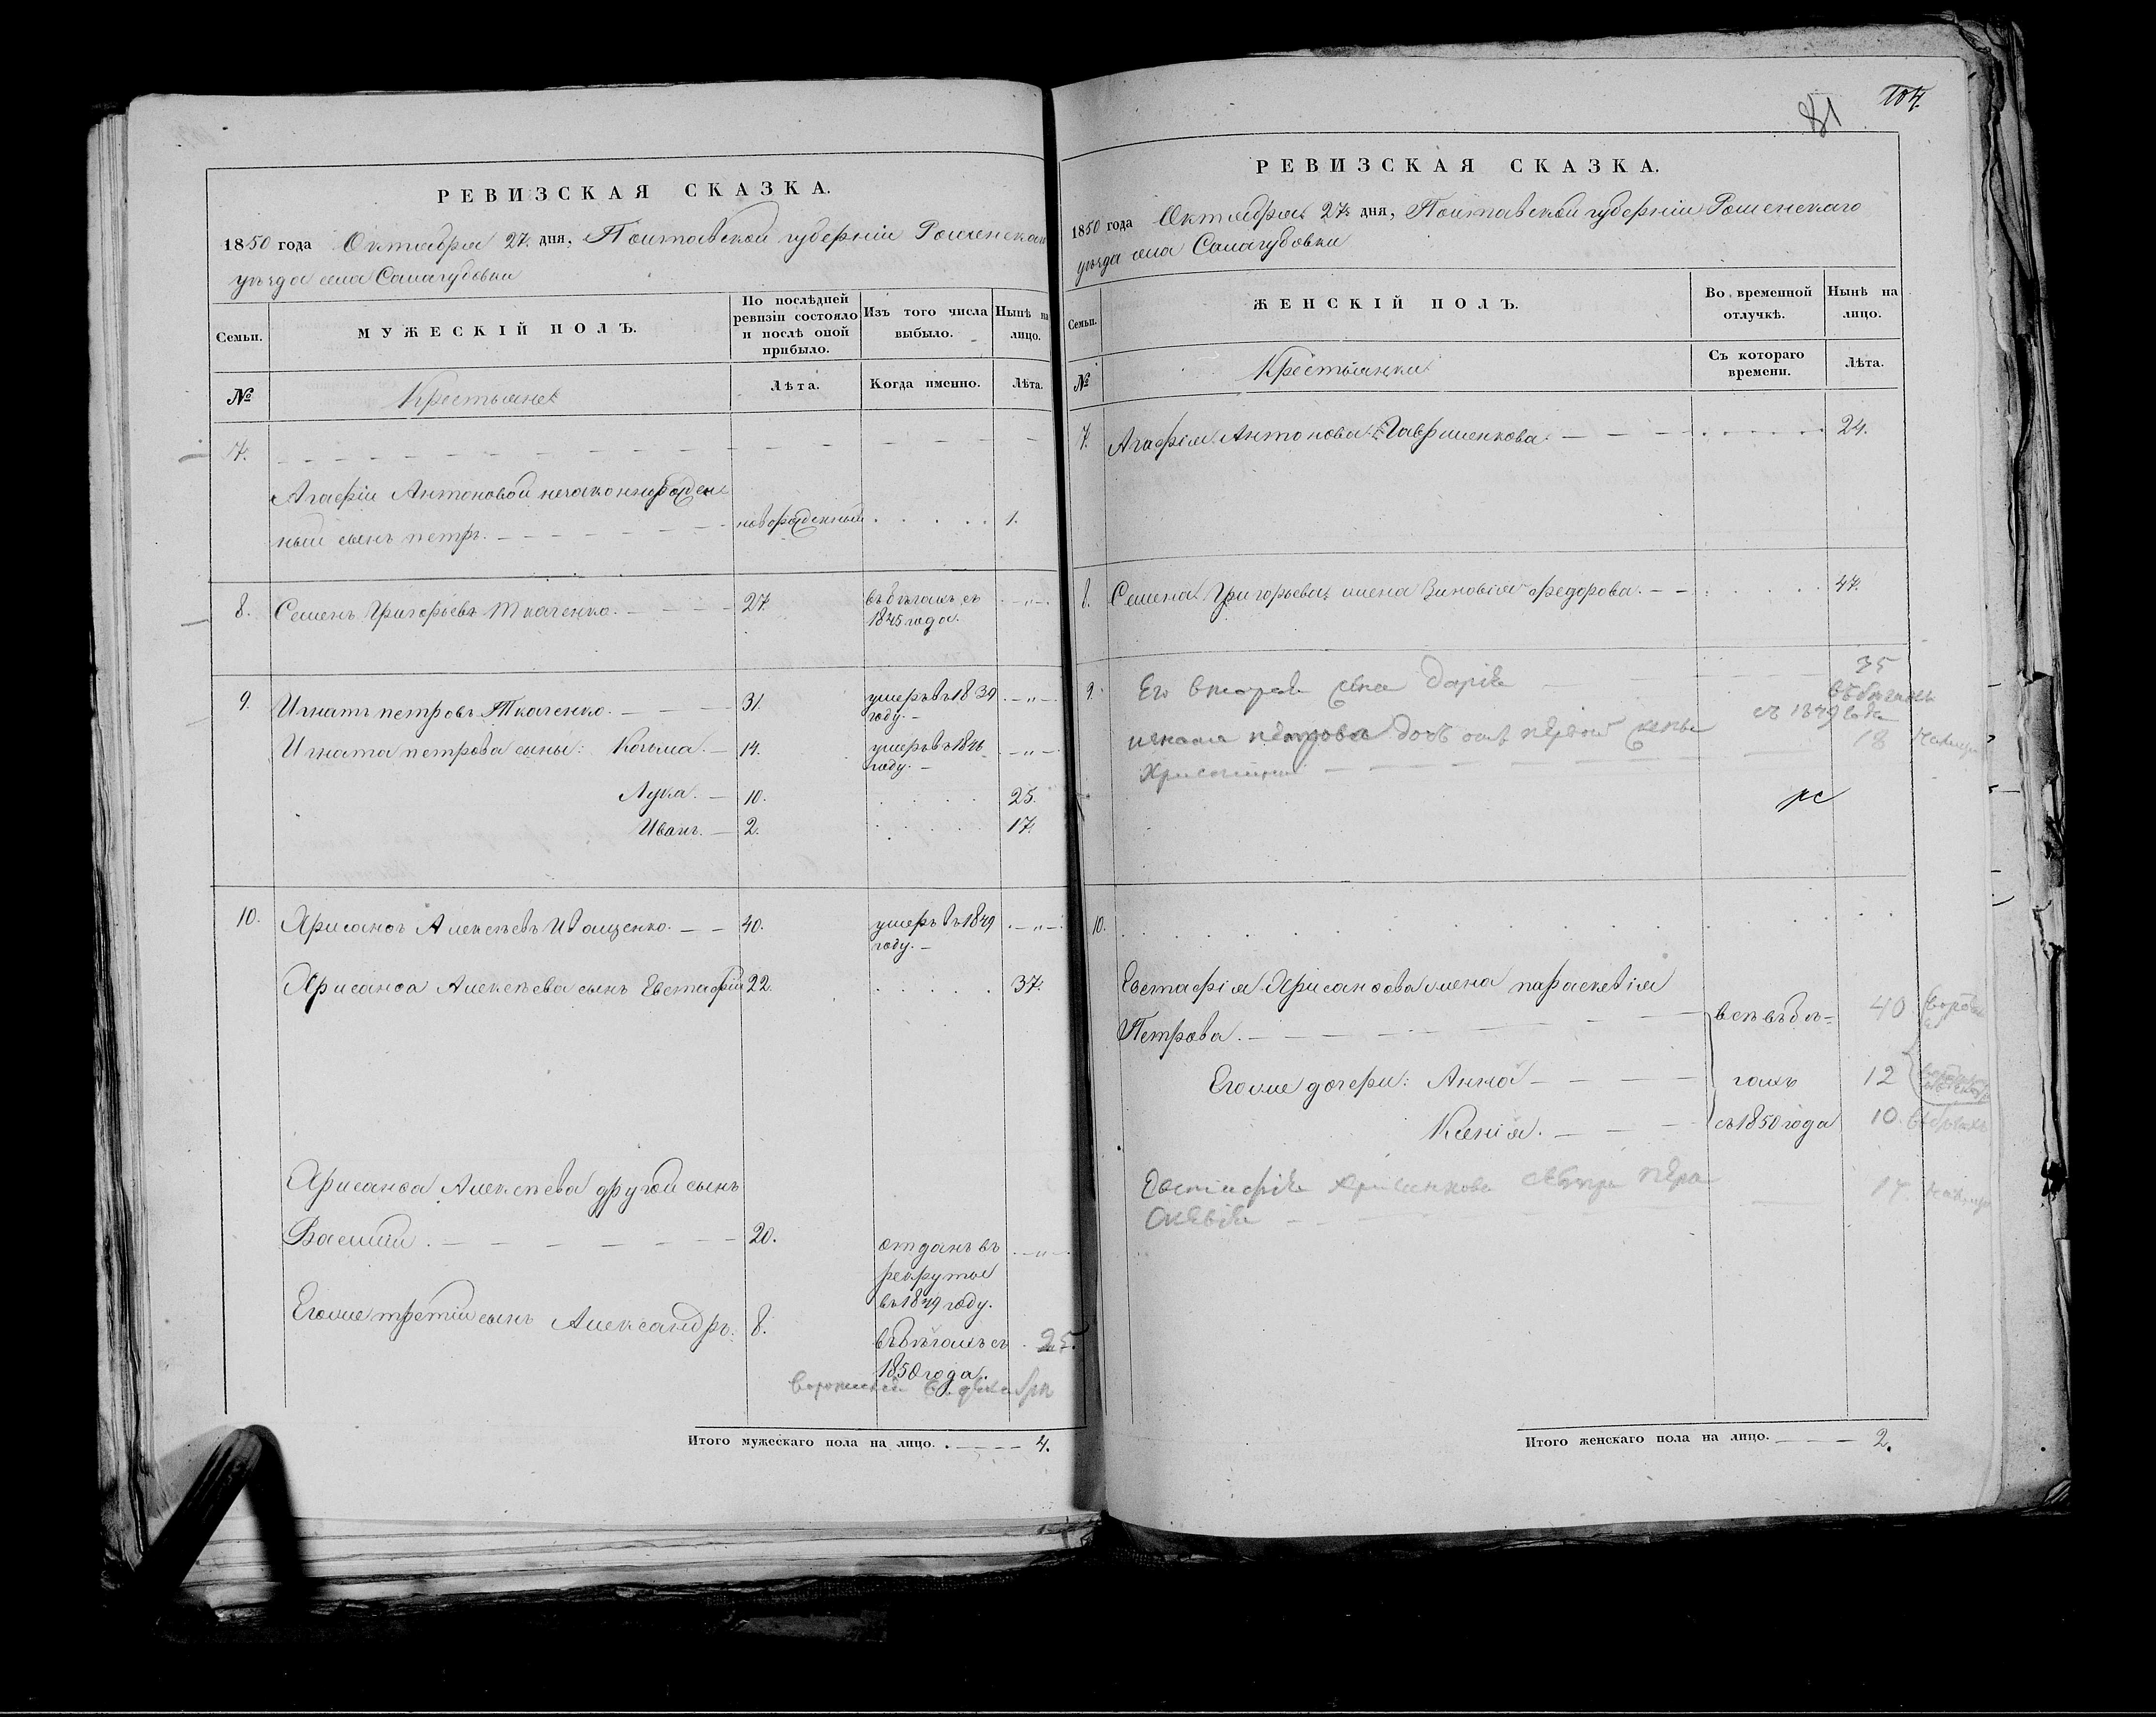 РЕВИЗСКАЯ СКАЗКА.
1850 года Октября 27. дня, Полтавской губерніи Роменскаго
уѣзда села Салагубовки
Семьи.
МУЖЕСКІЙ ПОЛЪ.
По послѣдней ревизіи состояло и послѣ оной прибыло.
Изъ того числа выбыло.
Нынѣ на лицо.
№
Крестьяне
Лѣта.
Когда именно.
Лѣта.
7.
Агафіи Антоновой незаконнорожден
ный сынъ петръ. новорожденный 1.
8. Семенъ Григорьевъ Ткаченко. 27. въ бѣгахъ съ
1845 года.
9. Игнатъ петровъ Ткаченко. 31. умеръ въ 1839
году.
Игната петрова сыны: Козьма. 14. умеръ въ 1846
году.
Лука. 10. 25.
Иванъ. 2. 17.
10. Хрисанфъ Алексѣевъ Иващенко. 40. умеръ въ 1849
году.
Хрисанфа Алексѣева сынъ Евстафій 22. 37.
Хрисанфа Алексѣева другой сынъ
Василій. 20. отданъ въ
рекруты
въ 1849 году.
Егоже третій сынъ Александръ. 8. въ бѣгахъ съ
1850 года.
Итого мужескаго пола на лицо. 4.
81
107.
РЕВИЗСКАЯ СКАЗКА.
1850 года Октября 27. дня, Полтавской губерніи Роменскаго
уѣзда села Салагубовки
Семьи.
ЖЕНСКІЙ ПОЛЪ.
Во временной отлучкѣ.
Нынѣ на лицо.
№
Крестьянки
Съ котораго времени.
Лѣта.
7. Агафія Антонова Гавриленкова. 24.
8. Семена Григорьева жена Зиновія федорова. 47.
9. Его вторая жена Дарія 35
въ бѣгахъ
съ 1849 года
игната петрова дочь отъ первой жены 18
Христина
10.
Евстафія Хрисанфова жена параскевія
Петрова. всѣ въ бѣ= 40
Егоже дочери: Анна гахъ 12
Ксенія. съ 1850 года 10.
Евстафія Хрисанфова сестра пара
скевія 17.
Итого женскаго пола на лицо. 2.